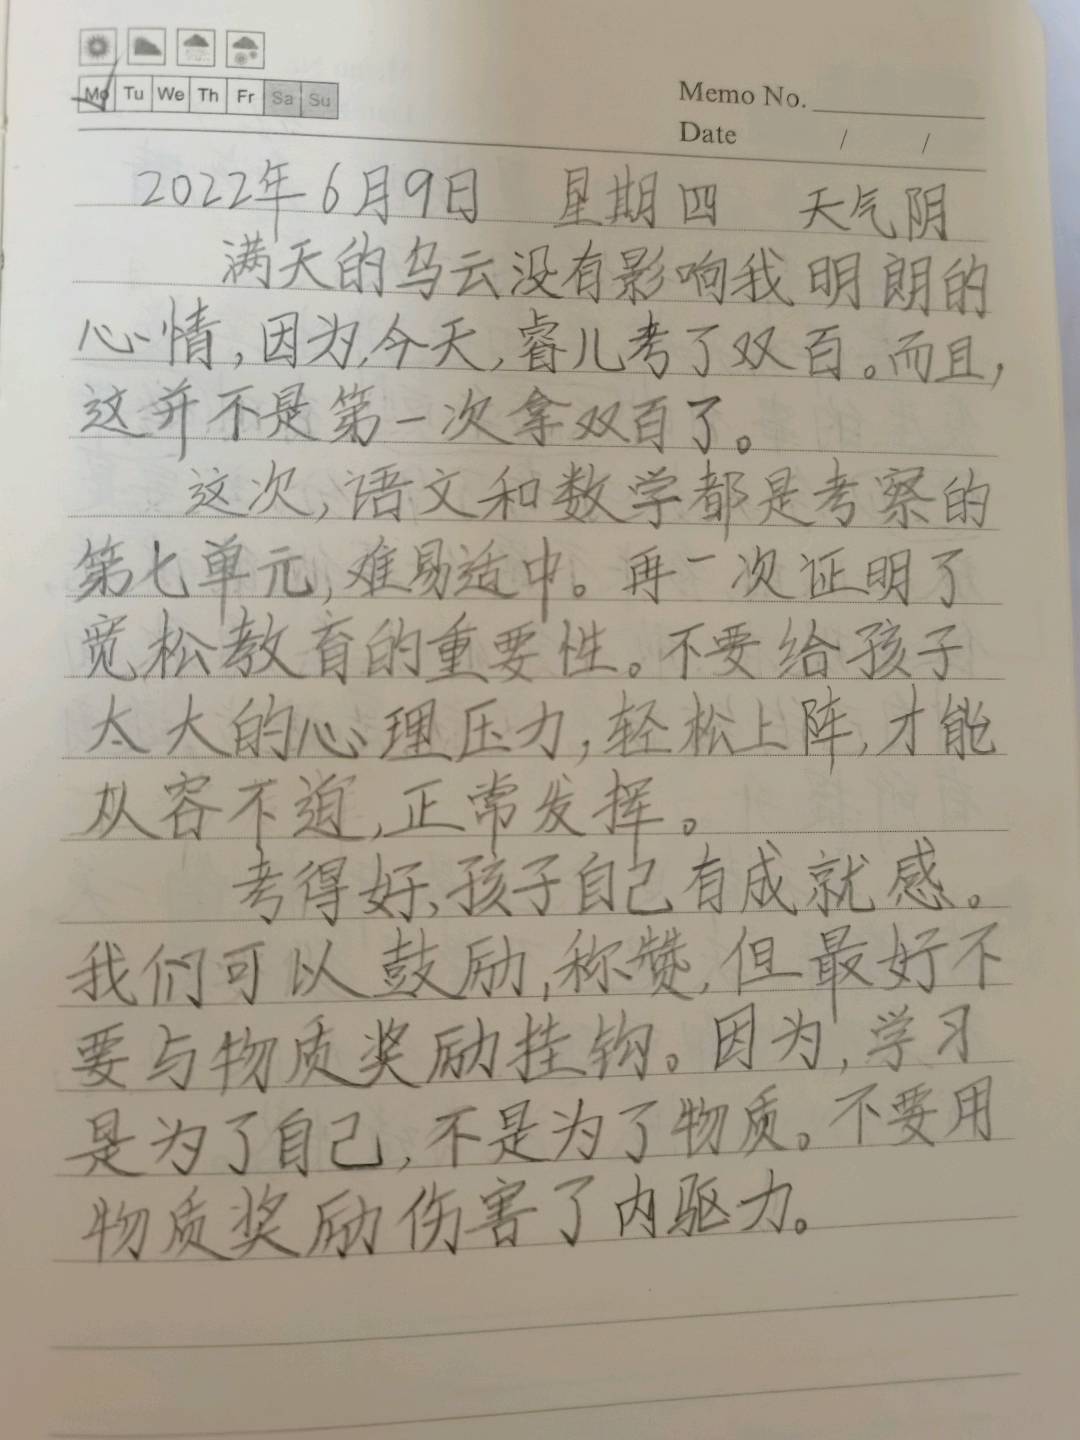 Mo Tu We Th Fr Sa Su
Memo No.
Date / /
2022年6月9日 星期四 天气阴
满天的乌云没有影响我明朗的
心情,因为,今天,睿儿考了双百。而且,
这并不是第一次拿双百了。
这次,语文和数学都是考察的
第七单元,难易适中。再一次证明了
宽松教育的重要性。不要给孩子
太大的心理压力,轻松上阵,才能
从容不迫,正常发挥。
考得好,孩子自己有成就感。
我们可以鼓励,称赞,但最好不
要与物质奖励挂钩。因为,学习
是为了自己,不是为了物质。不要用
物质奖励伤害了内驱力。